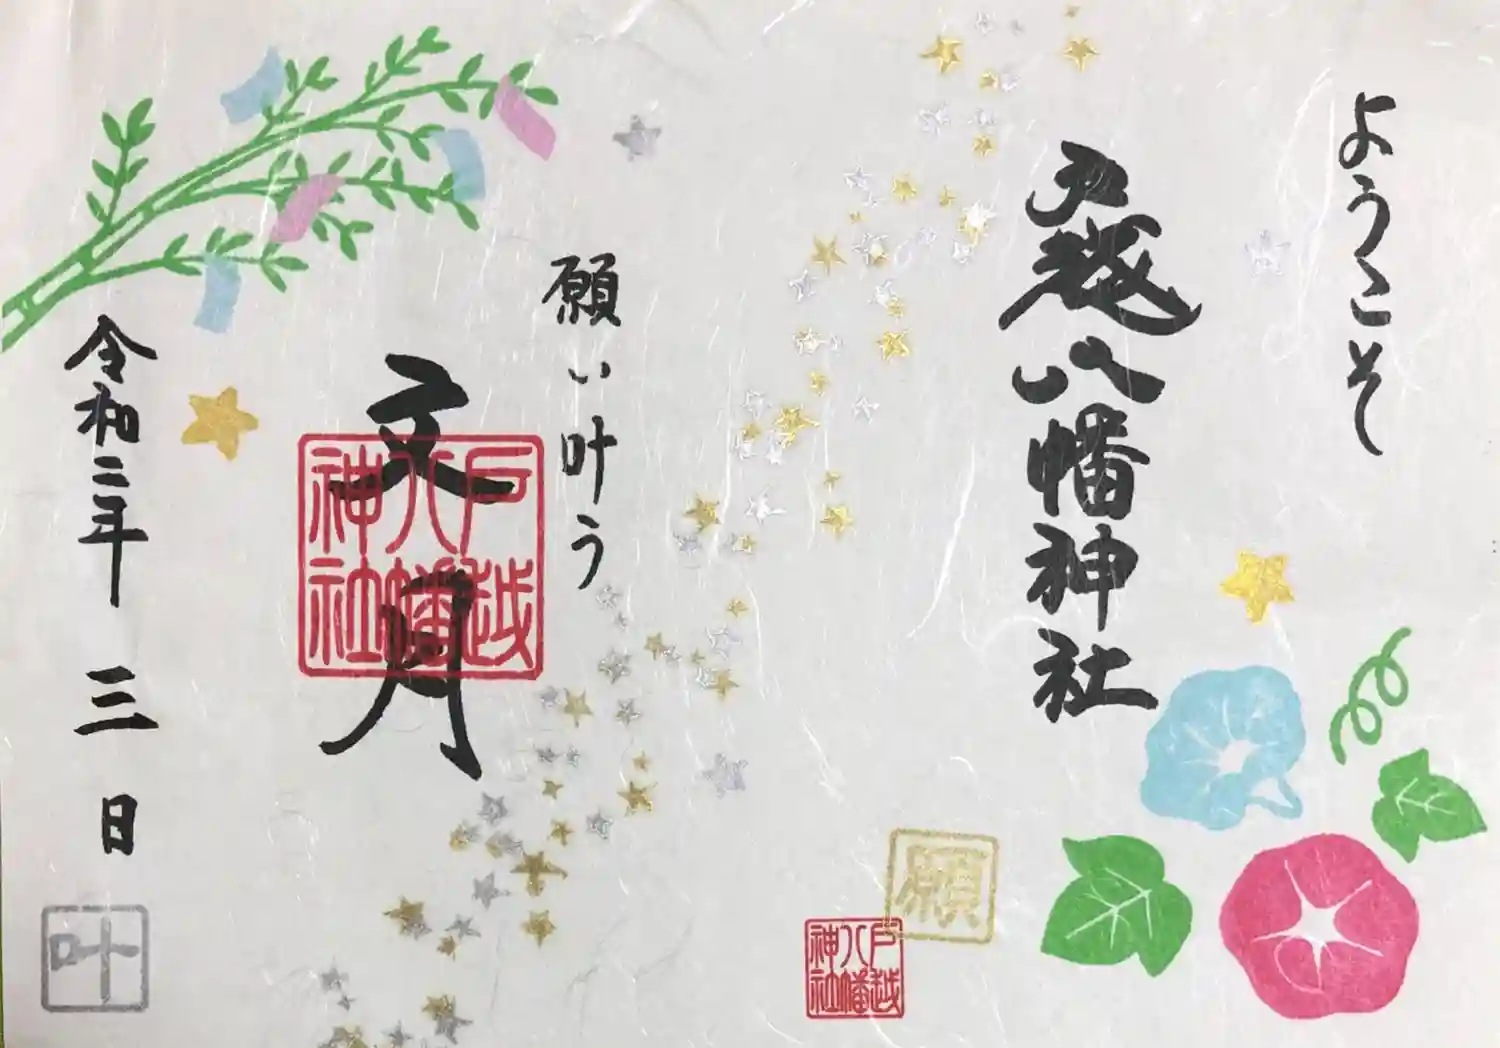 ようこそ
戸越八幡神社
願い叶う
文月
戸越
八幡
神社
令和二年 三日
願
戸越
八幡
神社
叶